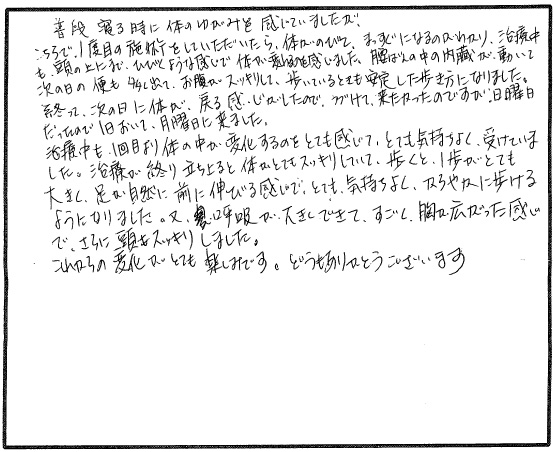 普段 寝る時に体のゆがみを感じていましたが、
こちらで、1度目の施術をしていただいたら、体がのびて、まっすぐになるのがわかり、治療中
も、頭の上にまで、ひびくような感じで 体が変わるのを感じました。腰ぼねの中の内臓が、動いて
次の日の便も 多く出て、お腹がスッキリして、歩いているときも安定した歩き方になりました。
終って、次の日に体が、戻る感じがしたので、つづけて、来たかったのですが、日曜日
だったので1日おいて、月曜日に来ました。
治療中も、1回目より体の中が変化するのをとても感じて、とても気持ちよく、受けていま
した。治療が終り立ち上ると体がとてもスッキリしていて、歩くと、1歩がとても
大きく、足が自然に前に伸びる感じで、とても、気持ちよく、かろやかに歩ける
ようになりました。又、呼吸が大きくできて、すごく、胸が広がった感じ
で、さらに頭もスッキリしました。
これからの変化がとても楽しみです。どうもありがとうございます